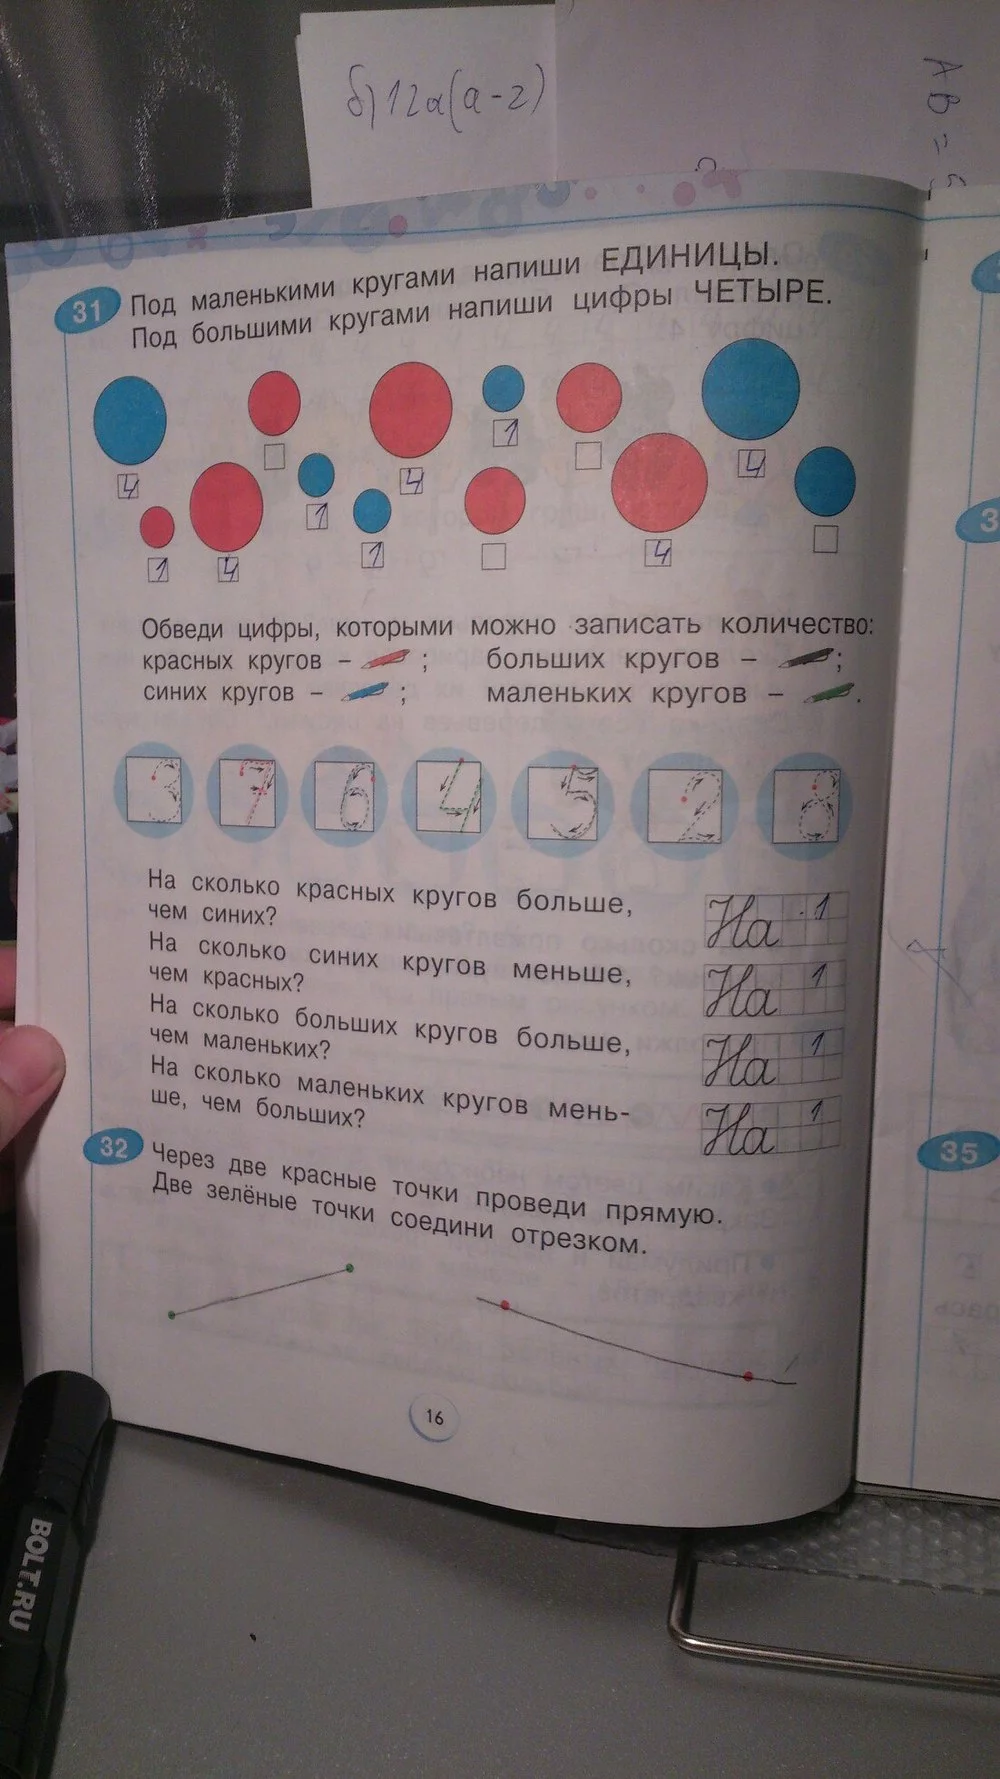 б) 12а(а-2)
АВ =
31 Под маленькими кругами напиши ЕДИНИЦЫ.
Под большими кругами напиши цифры ЧЕТЫРЕ.
4 4 1 4
1 4 1 1 4
Обведи цифры, которыми можно записать количество:
красных кругов – ; больших кругов – ;
синих кругов – ; маленьких кругов – .
3 7 6 4 5 2 8
На сколько красных кругов больше,
чем синих? На 1
На сколько синих кругов меньше,
чем красных? На 1
На сколько больших кругов больше,
чем маленьких? На 1
На сколько маленьких кругов мень-
ше, чем больших? На 1
32 Через две красные точки проведи прямую.
Две зелёные точки соедини отрезком.
16
35
BOLT.RU